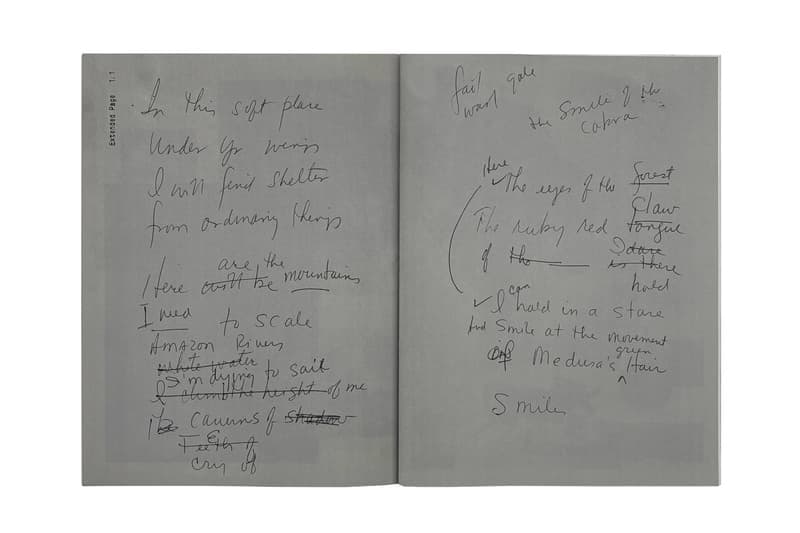 Extended Page 1.1
In this soft place
Under yr wings
I will find shelter
from ordinary things
are the
Here will be mountains
I need to scale
Amazon Rivers
white water
I'm dying to sail
I climb the height of me
The Caverns of shadow
Teeth of
cry of
sail
wand gale
the smile of the
Cobra
Here
The eyes of the forest
Claw
The ruby red tongue
of the I dare
is there
hold
can
I hold in a stare
And smile at the movement
green
of Medusa's Hair
Smile